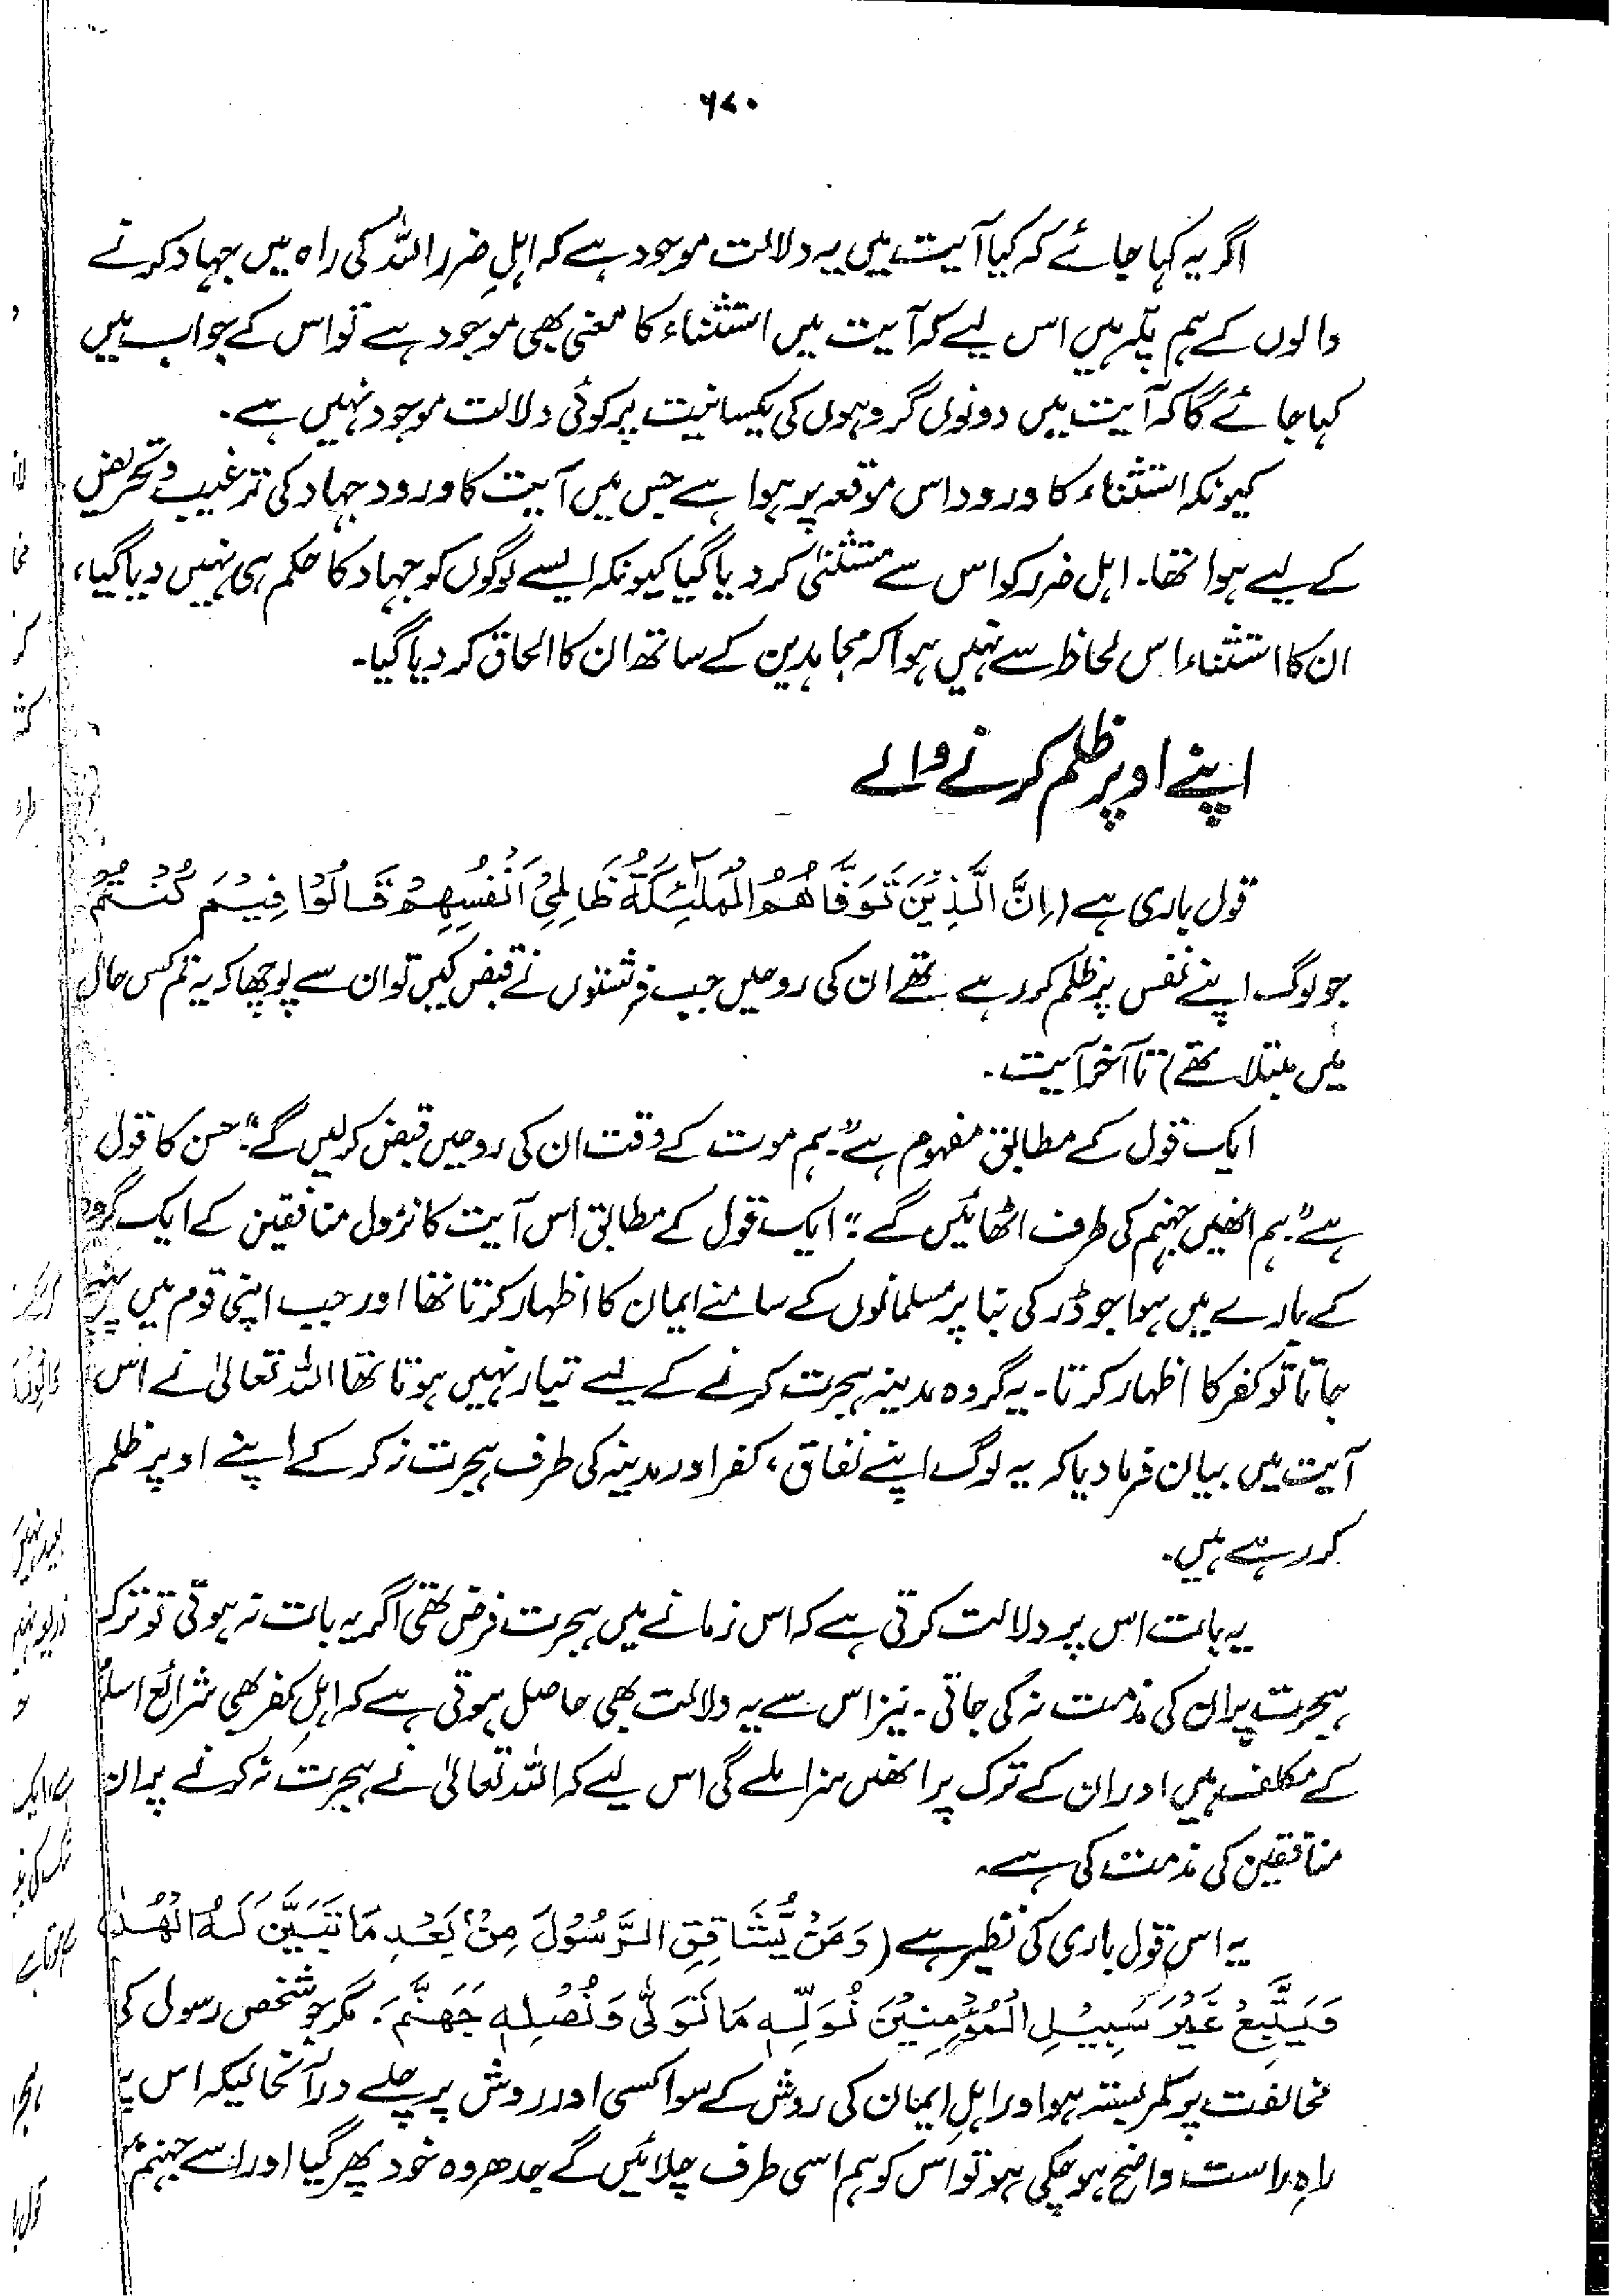 ۶۷۰
اگر یہ کہا جائے کہ کیا آیت میں یہ دلالت موجود ہے کہ اہلِ ضرر اللہ کی راہ میں جہاد کرنے
والوں کے ہم پلّہ ہیں اس لیے کہ آیت میں استثناء کا معنی بھی موجود ہے تو اس کے جواب میں
کہا جائے گا کہ آیت میں دونوں گروہوں کی یکسانیت پر کوئی دلالت موجود نہیں ہے۔
کیونکہ استثناء کا ورود اس موقعہ پر ہوا ہے جس میں آیت کا ورود جہاد کی ترغیب و تحریض
کے لیے ہوا تھا۔ اہل ضرر کو اس سے مستثنیٰ کر دیا گیا کیونکہ ایسے لوگوں کو جہاد کا حکم ہی نہیں دیا گیا،
ان کا استثناء اس لحاظ سے نہیں ہوا کہ مجاہدین کے ساتھ ان کا الحاق کر دیا گیا۔
اپنے اوپر ظلم کرنے والے
قول باری ہے (اِنَّ الَّذِيْنَ تَوَفَّاهُمُ الْمَلٰٓئِكَةُ ظَالِمِيْ اَنْفُسِهِمْ قَالُوْا فِيْمَ كُنْتُمْ
جو لوگ اپنے نفس پر ظلم کر رہے تھے ان کی روحیں جب فرشتوں نے قبض کیں تو ان سے پوچھا کہ یہ تم کس حال
میں مبتلا تھے) تا آخر آیت۔
ایک قول کے مطابق مفہوم ہے "ہم موت کے وقت ان کی روحیں قبض کر لیں گے"۔ حسن کا قول
ہے "ہم انھیں جہنم کی طرف اٹھائیں گے"۔ ایک قول کے مطابق اس آیت کا نزول منافقین کے ایک گروہ
کے بارے میں ہوا جو ڈر کی بنا پر مسلمانوں کے سامنے ایمان کا اظہار کرتا تھا اور جب اپنی قوم میں
جاتا تو کفر کا اظہار کرتا۔ یہ گروہ مدینہ ہجرت کرنے کے لیے تیار نہیں ہوتا تھا اللہ تعالیٰ نے اس
آیت میں بیان فرما دیا کہ یہ لوگ اپنے نفاق، کفر اور مدینہ کی طرف ہجرت نہ کر کے اپنے اوپر ظلم
کر رہے ہیں۔
یہ بات اس پر دلالت کرتی ہے کہ اس زمانے میں ہجرت فرض تھی اگر یہ بات نہ ہوتی تو ترک
ہجرت پر ان کی مذمت نہ کی جاتی۔ نیز اس سے یہ دلالت بھی حاصل ہوتی ہے کہ اہلِ کفر بھی شرائع اسلام
کے مکلف ہیں اور ان کے ترک پر انھیں سزا ملے گی اس لیے کہ اللہ تعالیٰ نے ہجرت نہ کرنے پر ان
منافقین کی مذمت کی ہے۔
یہ اس قول باری کی نظیر ہے (وَمَنْ يُّشَاقِقِ الرَّسُوْلَ مِنْۢ بَعْدِ مَا تَبَيَّنَ لَهُ الْهُدٰى
وَيَتَّبِعْ غَيْرَ سَبِيْلِ الْمُؤْمِنِيْنَ نُوَلِّهٖ مَا تَوَلّٰى وَنُصْلِهٖ جَهَنَّمَ۔ مگر جو شخص رسول کی
مخالفت پر کمر بستہ ہو اور اہلِ ایمان کی روش کے سوا کسی اور روش پر چلے درآنحالیکہ اس پر
راہِ راست واضح ہو چکی ہو تو اس کو ہم اسی طرف چلائیں گے جدھر وہ خود پھر گیا اور اسے جہنم